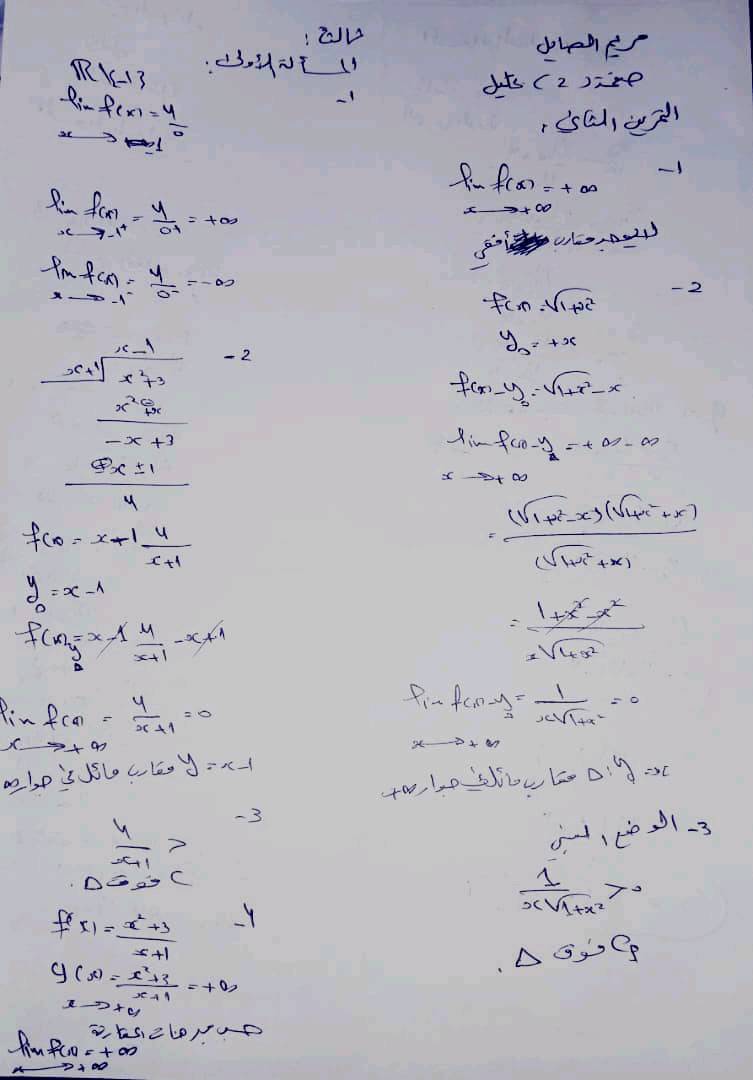 مريم الصايل
صفحة (2) تحليل
التمرين الثاني:
1-
lim f(x) = +∞
x → +∞
لا يوجد مقارب أفقي
2-
f(x) = √1+x²
y_Δ = +x
f(x) - y_Δ = √1+x² - x
lim f(x) - y_Δ = +∞ - ∞
x → +∞
= (√1+x² - x)(√1+x² + x) / (√1+x² + x)
= 1+x²-x² / x√1+x²
lim f(x) - y_Δ = 1 / x√1+x² = 0
x → +∞
Δ: y = x مقارب مائل في جوار +∞
3- الوضع النسبي
1 / x√1+x² > 0
C فوق Δ.
ثالثاً:
المسألة الأولى:
1-
R\{-1}
lim f(x) = 4/0
x → -1
lim f(x) = 4/0+ = +∞
x → -1+
lim f(x) = 4/0- = -∞
x → -1-
2-
x-1
x+1 √ x²+3
x² + x
-x + 3
x ± 1
4
f(x) = x+1 4/x+1
y_Δ = x-1
f(x) - y_Δ = x-1 4/x+1 - x+1
lim f(x) = 4/x+1 = 0
x → +∞
y = x-1 مقارب مائل في جوار ∞
3-
4/x+1 >
C فوق Δ.
4-
f(x) = x²+3 / x+1
g(x) = x²+3 / x+1 = +∞
x → +∞
حسب مبرهنات المقارنة
lim f(x) = +∞
x → +∞